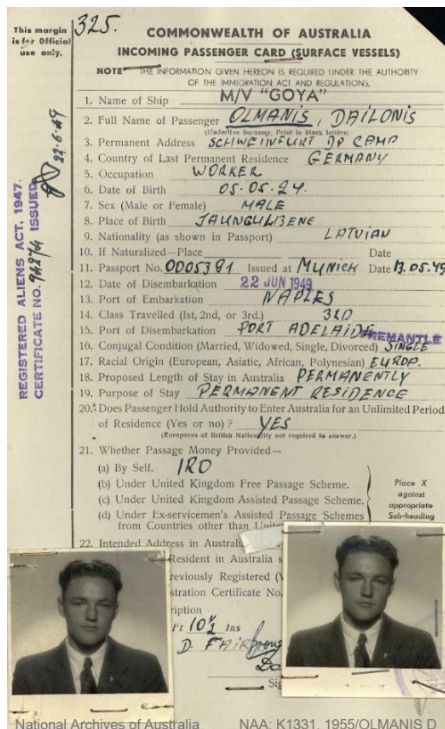 This margin is for Official use only.
325.
COMMONWEALTH OF AUSTRALIA
INCOMING PASSENGER CARD (SURFACE VESSELS)
NOTE THE INFORMATION GIVEN HEREON IS REQUIRED UNDER THE AUTHORITY
OF THE IMMIGRATION ACT AND REGULATIONS.
1. Name of Ship M/V "GOYA"
2. Full Name of Passenger OLMANIS, DAILONIS
(Underline Surname, Print in block letters)
3. Permanent Address SCHWEINFURT DP CAMP
4. Country of Last Permanent Residence GERMANY
5. Occupation WORKER
6. Date of Birth 05.05.24.
7. Sex (Male or Female) MALE
8. Place of Birth JAUNGULBENE
9. Nationality (as shown in Passport) LATVIAN
10. If Naturalized—Place Date
11. Passport No. 0005391 Issued at MUNICH Date 13.05.49
12. Date of Disembarkation 22 JUN 1949
13. Port of Embarkation NAPLES
14. Class Travelled (1st, 2nd, or 3rd.) 3RD
15. Port of Disembarkation PORT ADELAIDE FREMANTLE
16. Conjugal Condition (Married, Widowed, Single, Divorced) SINGLE
17. Racial Origin (European, Asiatic, African, Polynesian) EUROP.
18. Proposed Length of Stay in Australia PERMANENTLY
19. Purpose of Stay PERMANENT RESIDENCE
20. Does Passenger Hold Authority to Enter Australia for an Unlimited Period
of Residence (Yes or no)? YES
(Europeans of British Nationality not required to answer.)
21. Whether Passage Money Provided—
(a) By Self. IRO
(b) Under United Kingdom Free Passage Scheme.
(c) Under United Kingdom Assisted Passage Scheme.
(d) Under Ex-servicemen's Assisted Passage Schemes
from Countries other than
Place X
against
appropriate
Sub-heading
22. Intended Address in Austral
Resident in Australia
reviously Registered
stration Certificate No.
ription
Ft 10½ Ins
D. FAIR
REGISTERED ALIENS ACT, 1947.
CERTIFICATE NO. ISSUED
22-6-49
National Archives of Australia NAA: K1331, 1955/OLMANIS D